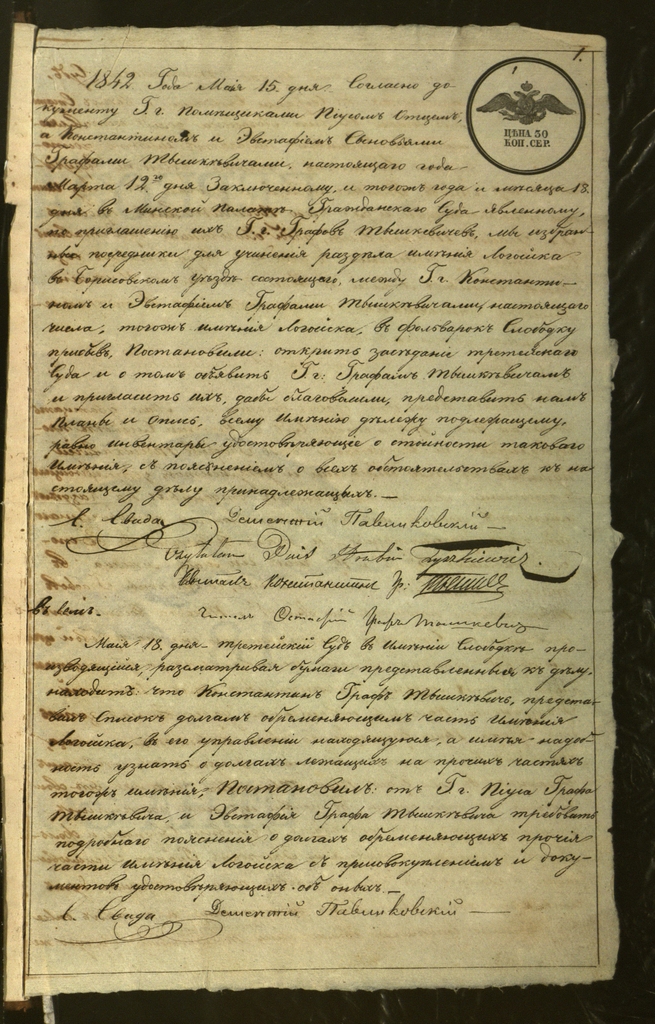 1.
1842 Года Мая 15. дня. Согласно до
кументу Г. г. Помѣщиками Піусомъ Отцемъ,
а Константиномъ и Эвстафіемъ Сыновьями
Графами Тышкѣвичами, настоящаго года
Марта 12го дня Заключенному, и тогожъ года и мѣсяца 13.
дня въ Минской Палатѣ Гражданскаго Суда явленному,
по приглашенію ихъ Г. г. Графовъ Тышкевичевъ, мы избран
ные посредники для учиненія раздѣла имѣнія Логойска
въ Борисовскомъ уѣздѣ состоящаго, между Г. г. Константи-
номъ и Эвстафіемъ Графами Тышкѣвичами, настоящаго
числа, тогожъ имѣнія Логойска, въ фольварокъ Слободку
прибывъ, Постановили: открыть засѣданіе третейскаго
Суда и о томъ объявить Г. г: Графамъ Тышкѣвичамъ
и пригласить ихъ, дабы благоволили, представить намъ
планы и опись, всему Имѣнію дѣлежу подлежащему,
равно инвентари удостовѣряющіе о стоимости таковаго
Имѣнія, съ поясненіемъ о всѣхъ обстоятельствахъ къ на
стоящему дѣлу принадлежащихъ. —
А. Свада Дементій Павликовскій —
Czytałem Pius Hrabia Tyszkiewicz.
Читалъ Константинъ Гр. Тышкѣ
Читалъ Остафій Графъ Тышкевичъ
Мая 18. дня третейскій Судъ въ Имѣніи Слободкѣ про-
изводящійся, разсматривая бумаги представленныя къ дѣлу,
находитъ что Константинъ Графъ Тышкѣвичъ, предста-
вилъ Списокъ долгамъ обременяющимъ часть Имѣнія
Логойска, въ его управленіи находящуюся, а имѣя надоб-
ность узнать о долгахъ лежащихъ на прочихъ частяхъ
тогожъ имѣнія, Постановилъ: отъ Г. г. Піуса Графа
Тышкѣвича, и Эвстафія Графа Тышкѣвича требовать
подробнаго поясненія о долгахъ обременяющихъ прочія
части Имѣнія Логойска съ присовокупленіемъ и доку-
ментовъ удостовѣряющихъ объ оныхъ. —
А. Свада Дементій Павликовскій —
ЦѢНА 50
КОП. СЕР.